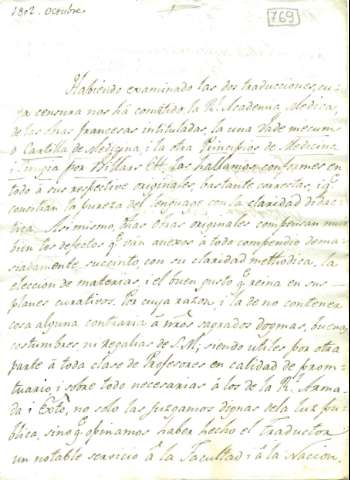 1802. Octubre
769
Habiendo examinado las dos traducciones, cu-
ya censura nos há cometido la Rl. Academia Medica,
de las obras francesas intituladas, la una Vade mecum
ó Cartilla de Medicina, i la otra Principios de Medicina
i Cirugia por Villars &c. las hallamos conformes en
todo á sus respectivos originales, bastante correctas, i q.e
concilian la pureza del lenguage con la claridad didac-
tica. Asimismo, dhas obras originales compensan mui
bien los defectos q.e van anexos á todo compendio dema-
siadamente succinto, con su claridad methodica, la
eleccion de materias, i el buen gusto q.e reina en sus
planes curativos. Por cuya razon, i la de no contener
cosa alguna contraria á nros sagrados dogmas, buenas
costumbres, ni regalias de S. M; siendo utiles por otra
parte á toda clase de Profesores en calidad de promt-
tuario, i sobre todo necesarias á los de la Rl. Arma-
da i Exto, no solo las juzgamos dignas dela luz pú-
blica, sino q.e opinamos haber hecho el traductor
un notable servicio á la Facultad i á la Nacion.